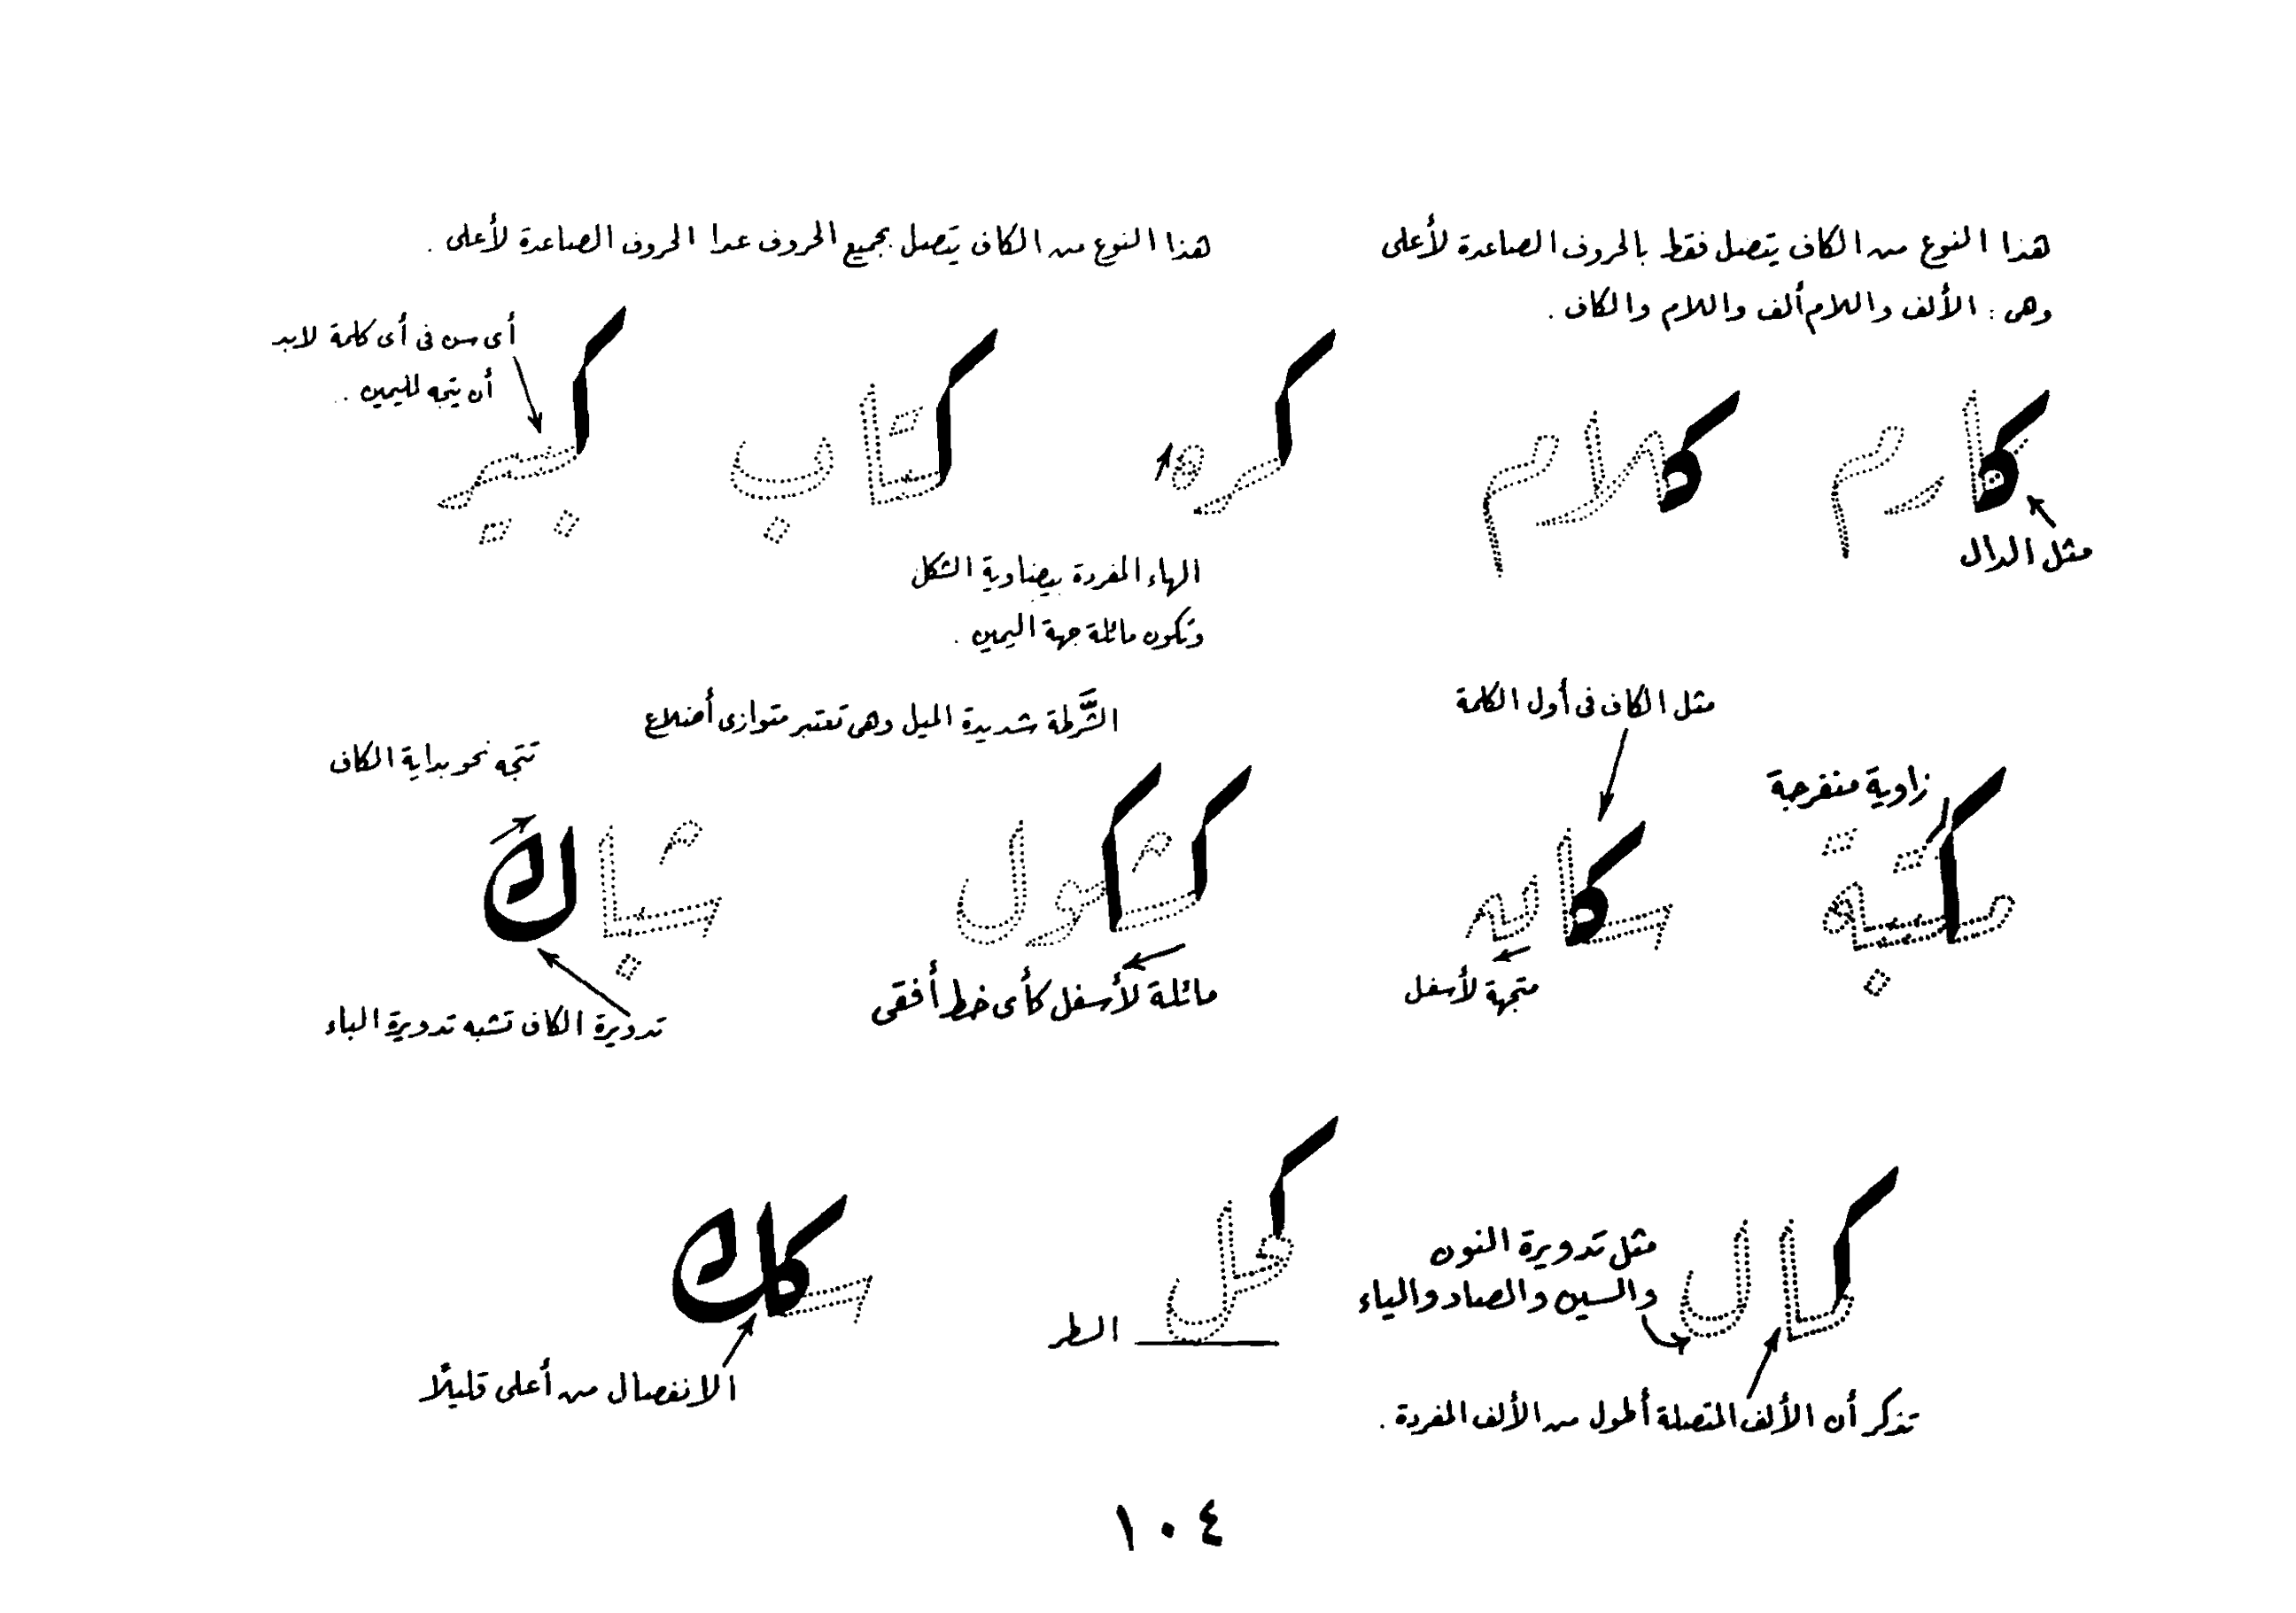 هذا النوع من الكاف يتصل فقط بالحروف الصاعدة لأعلى
وهى : الألف واللام ألف واللام والكاف .
هذا النوع من الكاف يتصل بجميع الحروف عدا الحروف الصاعدة لأعلى .
أى سن فى أى كلمة لابد
أن يتجه لليمين .
كارم
كلام
كره
كتاب
كبير
مثل الدال
الهاء المفردة بيضاوية الشكل
وتكون مائلة جهة اليمين .
مثل الكاف فى أول الكلمة
الشَّرطة شديدة الميل وهى تعتبر متوازى أضلاع
تتجه نحو بداية الكاف
زاوية منفرجة
مكتبة
سكايه
كشكول
شباك
متجهة لأسفل
مائلة لأسفل كأى خط أفقى
تدويرة الكاف تشبه تدويرة الباء
كمال
كحل
سكك
مثل تدويرة النون
والسين والصاد والياء
السطر
الانفصال من أعلى قليلًا
تذكر أن الألف المتصلة أطول من الألف المفردة .
١٠٤